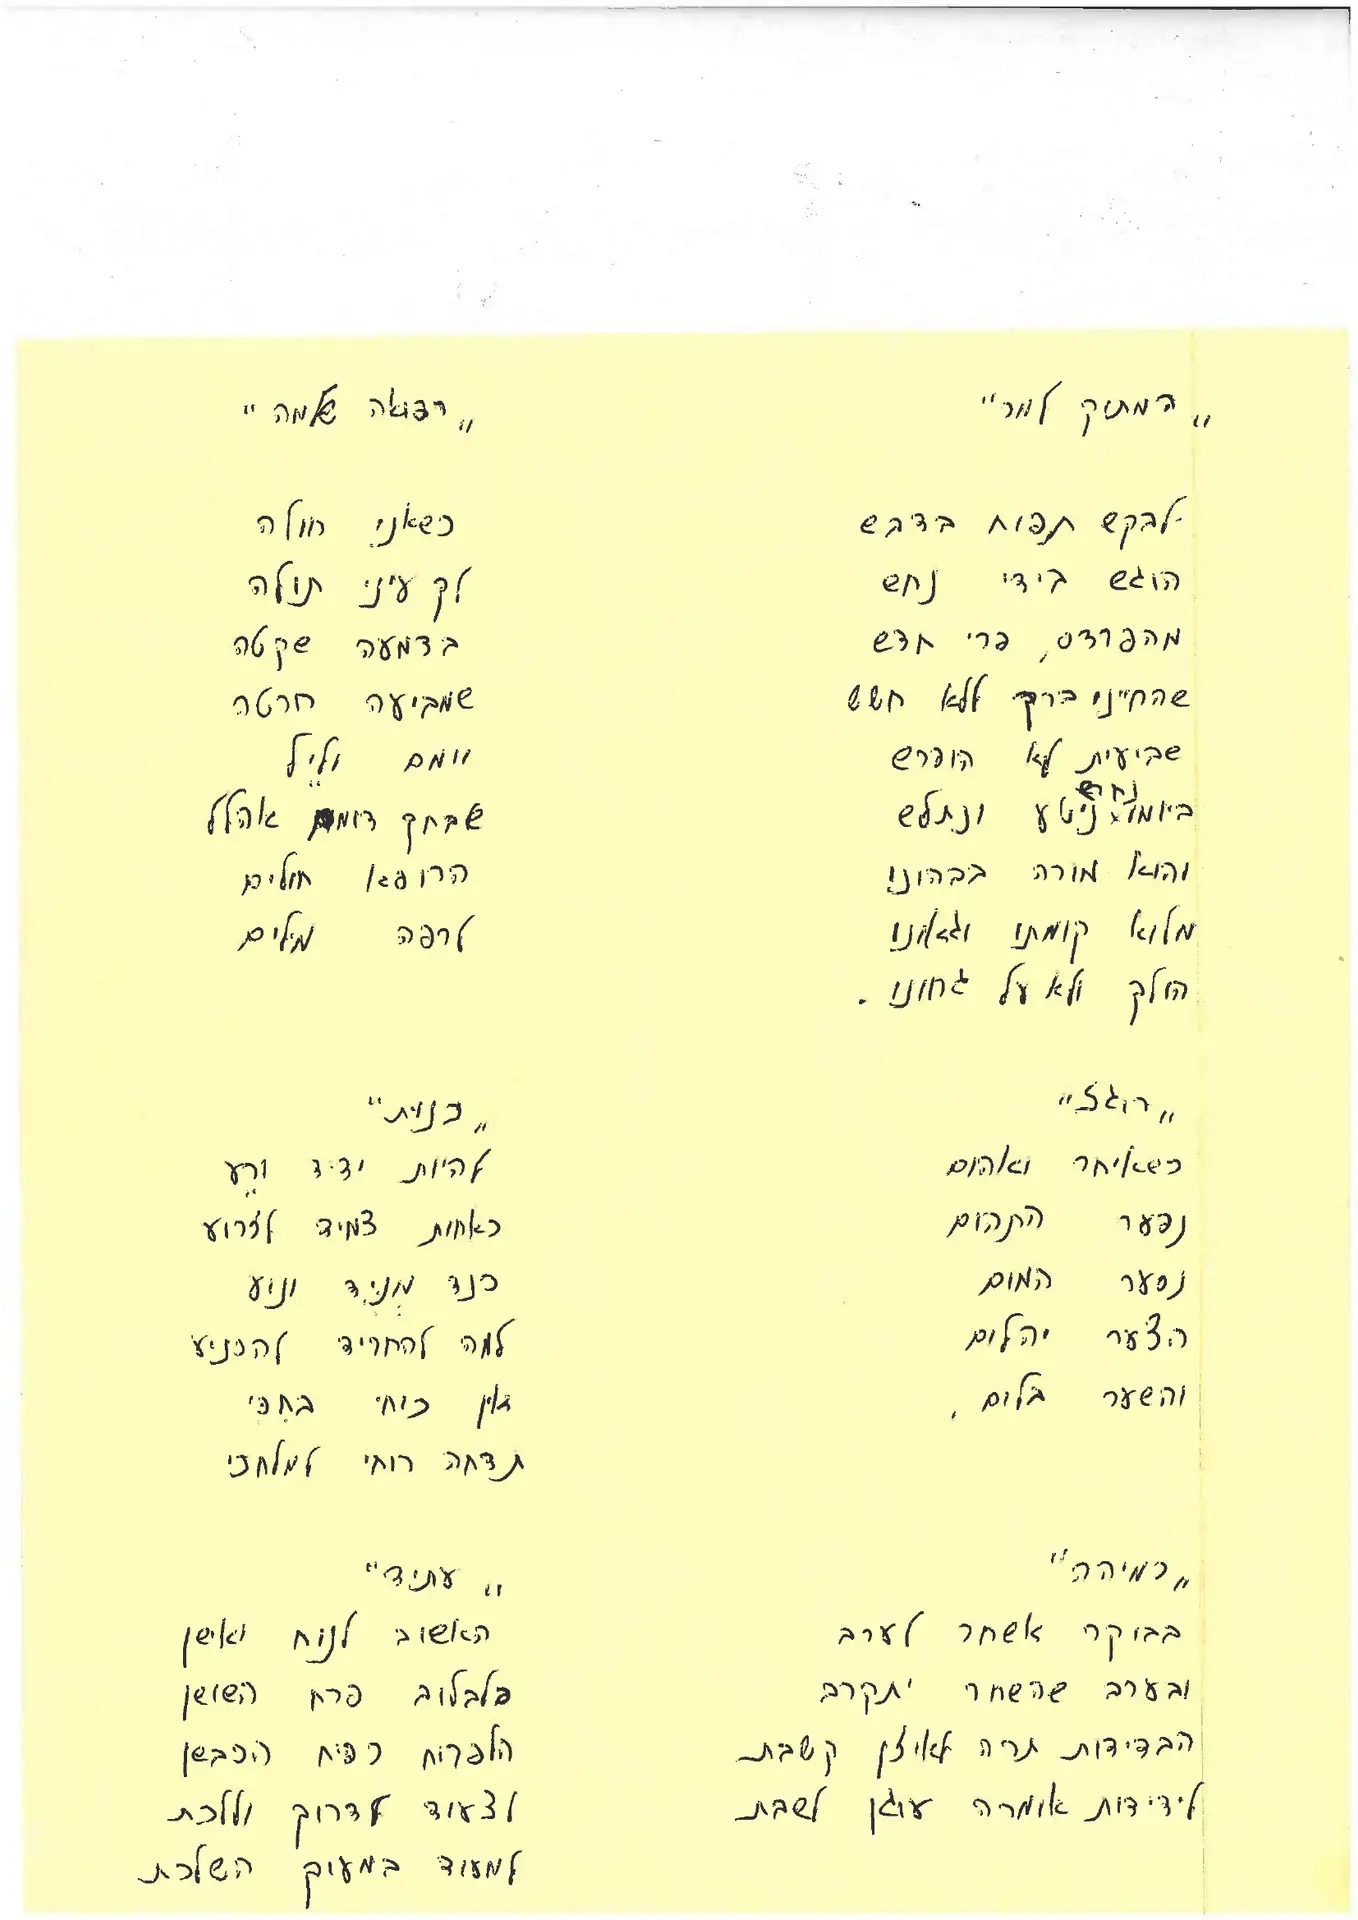 „המתוק למר"
לבקש תפוח בדבש
הוגש בידי נחש
מהפרדס, פרי חדש
שהחייני ברך ללא חשש
שביעית לא הופרש
נחרש
ביומו ניטע ונתלש
והוא מורה בבהונו
מלוא קומתו וגאונו
הולך ולא על גחונו.
„רוגז"
כשאיחר ואהום
נפער התהום
נסער המום
הצער יהלום
והשער בלום.
„כמיהה"
בבוקר אשחר לערב
ובערב שהשחר יתקרב
הבדידות תריה לאיזן קשבת
לידידות אומרה עוגן לשבת
„רפואה שלמה"
כשאני חולה
לך עיני תולה
בדמעה שקטה
שמביעה חרטה
יומם וליל
שבחך אהלל
הרופא חולים
לרפה מלים
„כנוית"
להיות ידיד ורע
כאחות צמיד לזרוע
כנד מניד וניע
למה להחריד להכניע
אין כוחי בחכי
תדחה רוחי למלחכי
„עתיד"
האשוב לנוח ואישן
כלבלוב פרח השושן
הלפרוח כפיח הכבשן
לצעוד לדרוך וללכת
למעוד במעוך השלכת